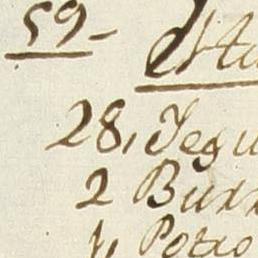 59-
28, Yegu
2 Burr
1, Potro